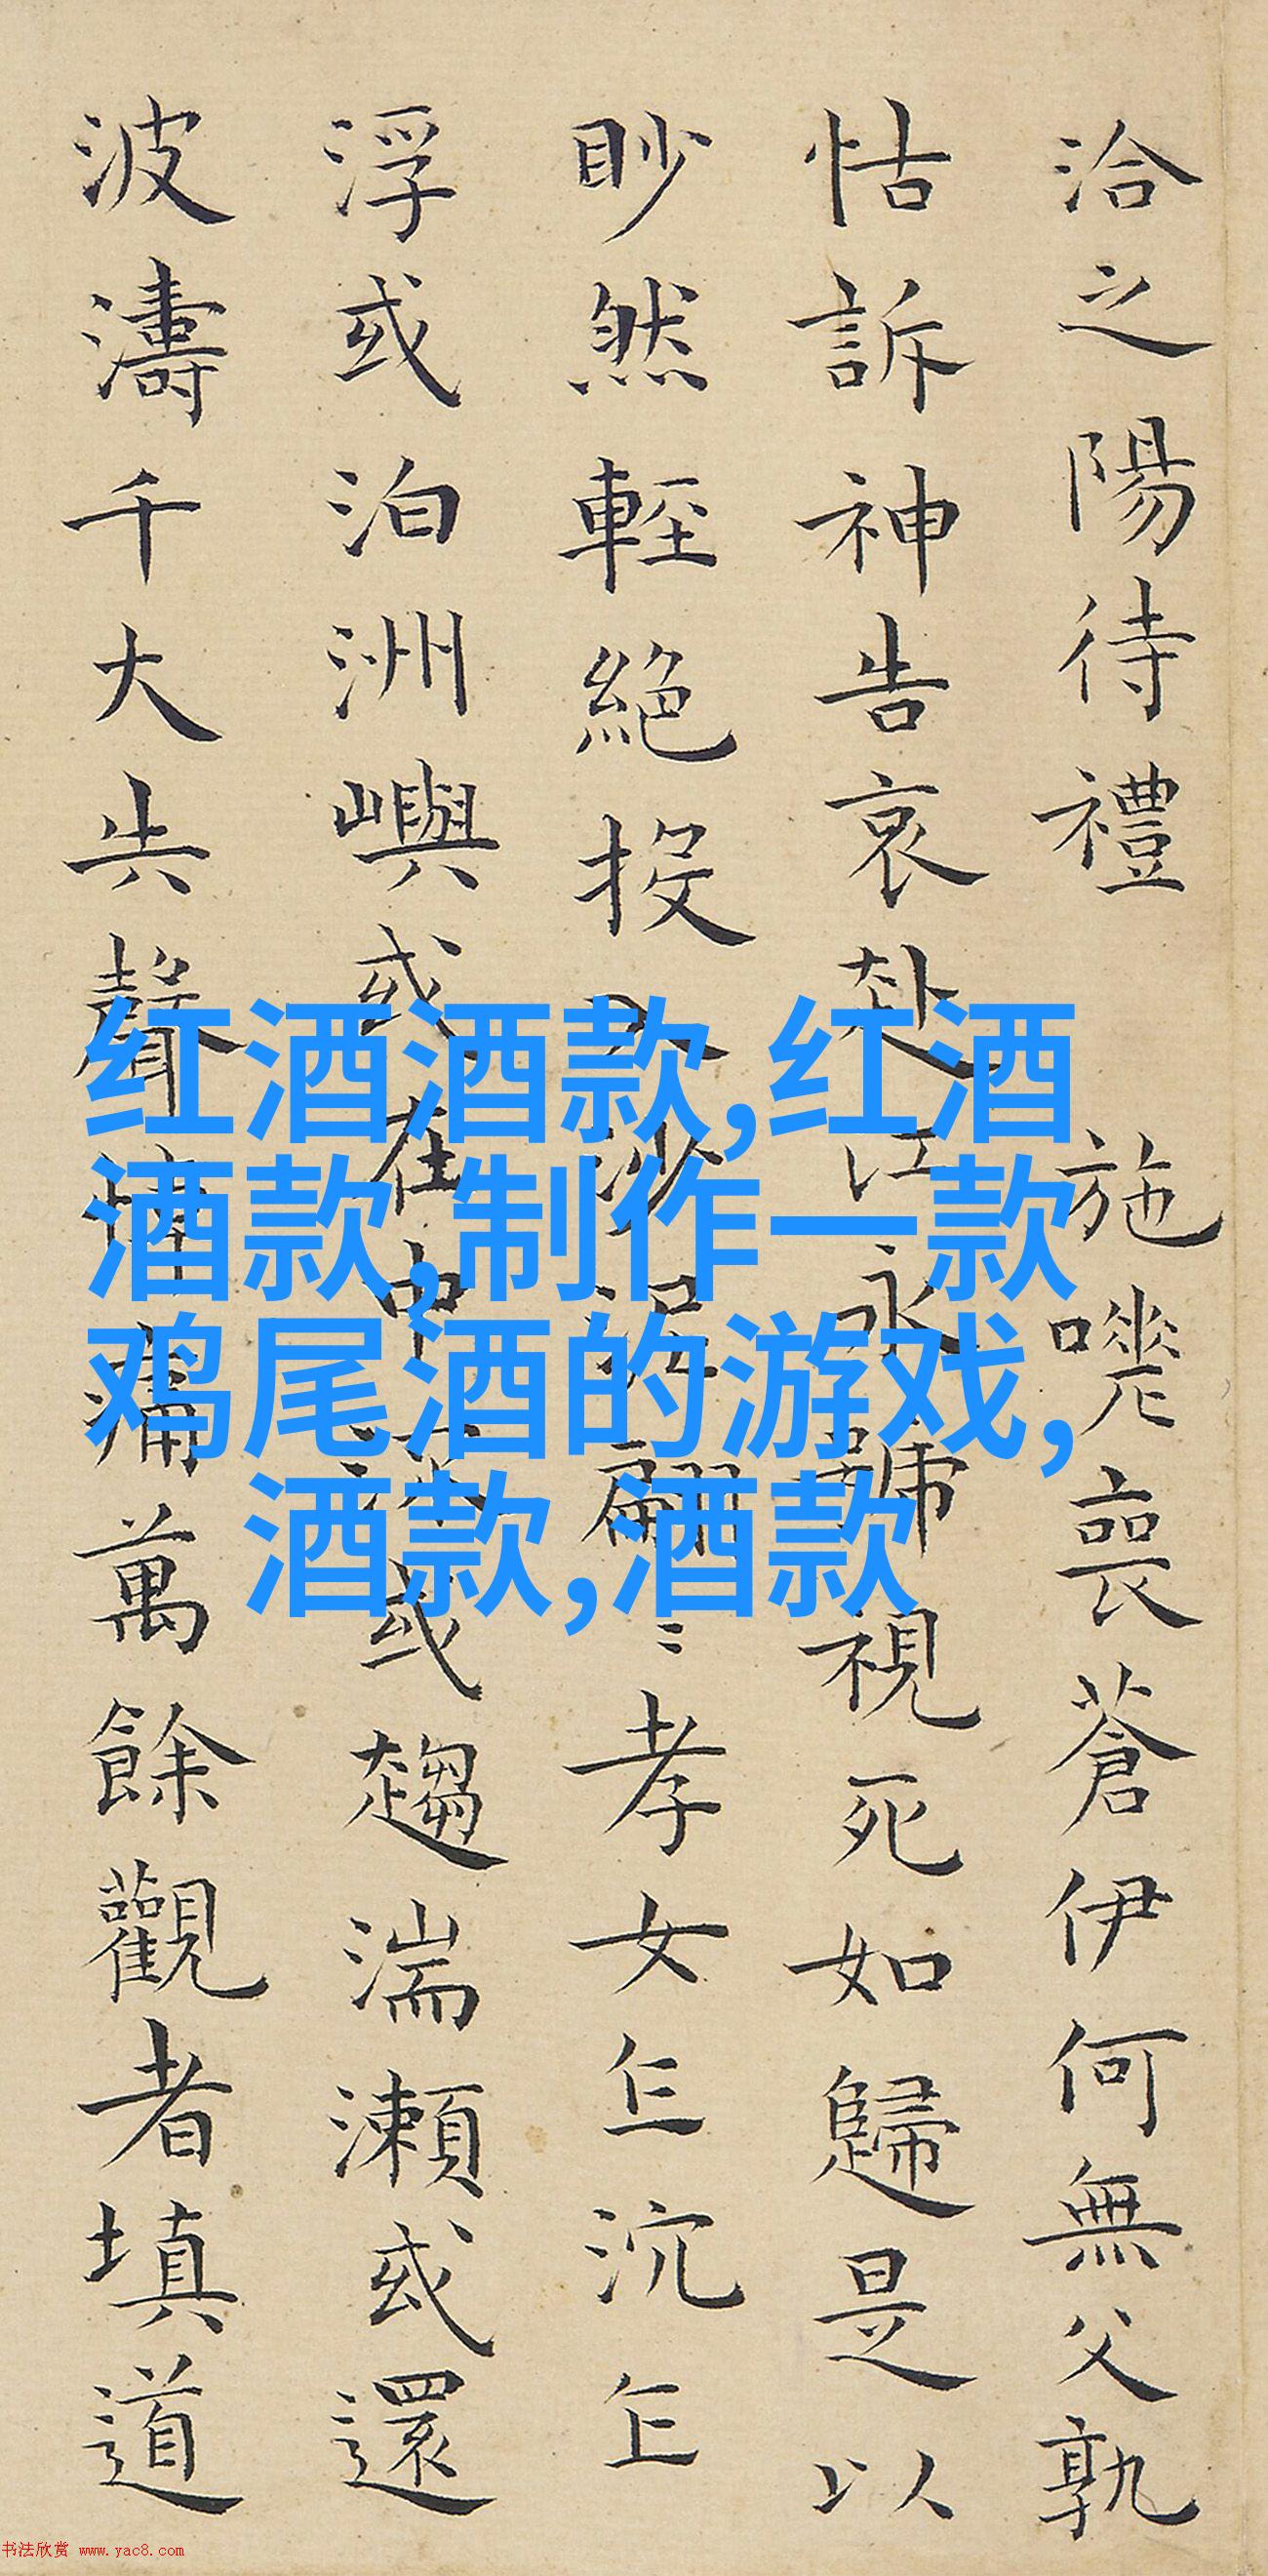 洽之陽待禮 施嗟喪蒼伊何無父孰
怙訴神告哀赴江永號視死如歸是以
眇然輕絕投入沙泥翩〻孝女乍沉乍
浮或泊洲嶼或在中流或趨湍瀬或還
波濤千大失聲悼痛萬餘觀者填道
红酒酒款,红酒
酒款,制作一款
鸡尾酒的游戏,
酒款,酒款
书法欣赏 www.yac8.com